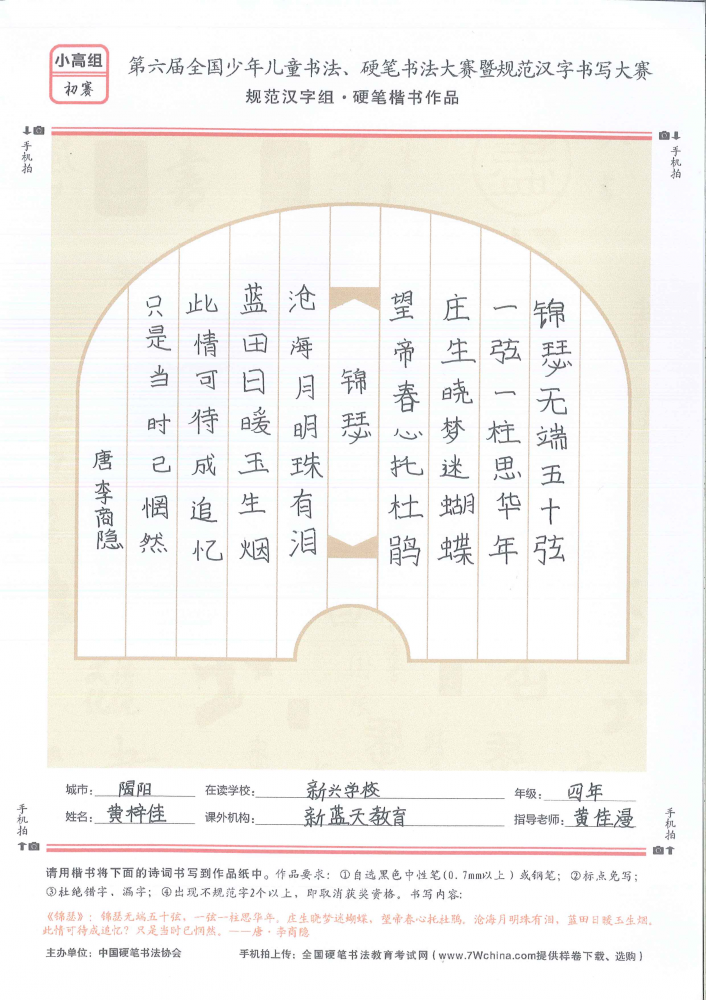 小高组
初赛
第六届全国少年儿童书法、硬笔书法大赛暨规范汉字书写大赛
规范汉字组·硬笔楷书作品
手机拍
手机拍
锦瑟无端五十弦
一弦一柱思华年
庄生晓梦迷蝴蝶
望帝春心托杜鹃
锦瑟
沧海月明珠有泪
蓝田日暖玉生烟
此情可待成追忆
只是当时已惘然
唐李商隐
城市：揭阳 在读学校：新兴学校 年级：四年
姓名：黄梓佳 课外机构：新蓝天教育 指导老师：黄佳漫
手机拍
手机拍
请用楷书将下面的诗词书写到作品纸中。作品要求：①自选黑色中性笔(0.7mm以上)或钢笔；②标点免写；
③杜绝错字、漏字；④出现不规范字2个以上，即取消获奖资格。书写内容：
《锦瑟》：锦瑟无端五十弦，一弦一柱思华年。庄生晓梦迷蝴蝶，望帝春心托杜鹃。沧海月明珠有泪，蓝田日暖玉生烟。
此情可待成追忆？只是当时已惘然。——唐·李商隐
主办单位：中国硬笔书法协会 手机拍上传：全国硬笔书法教育考试网(www.7Wchina.com提供样卷下载、选购)